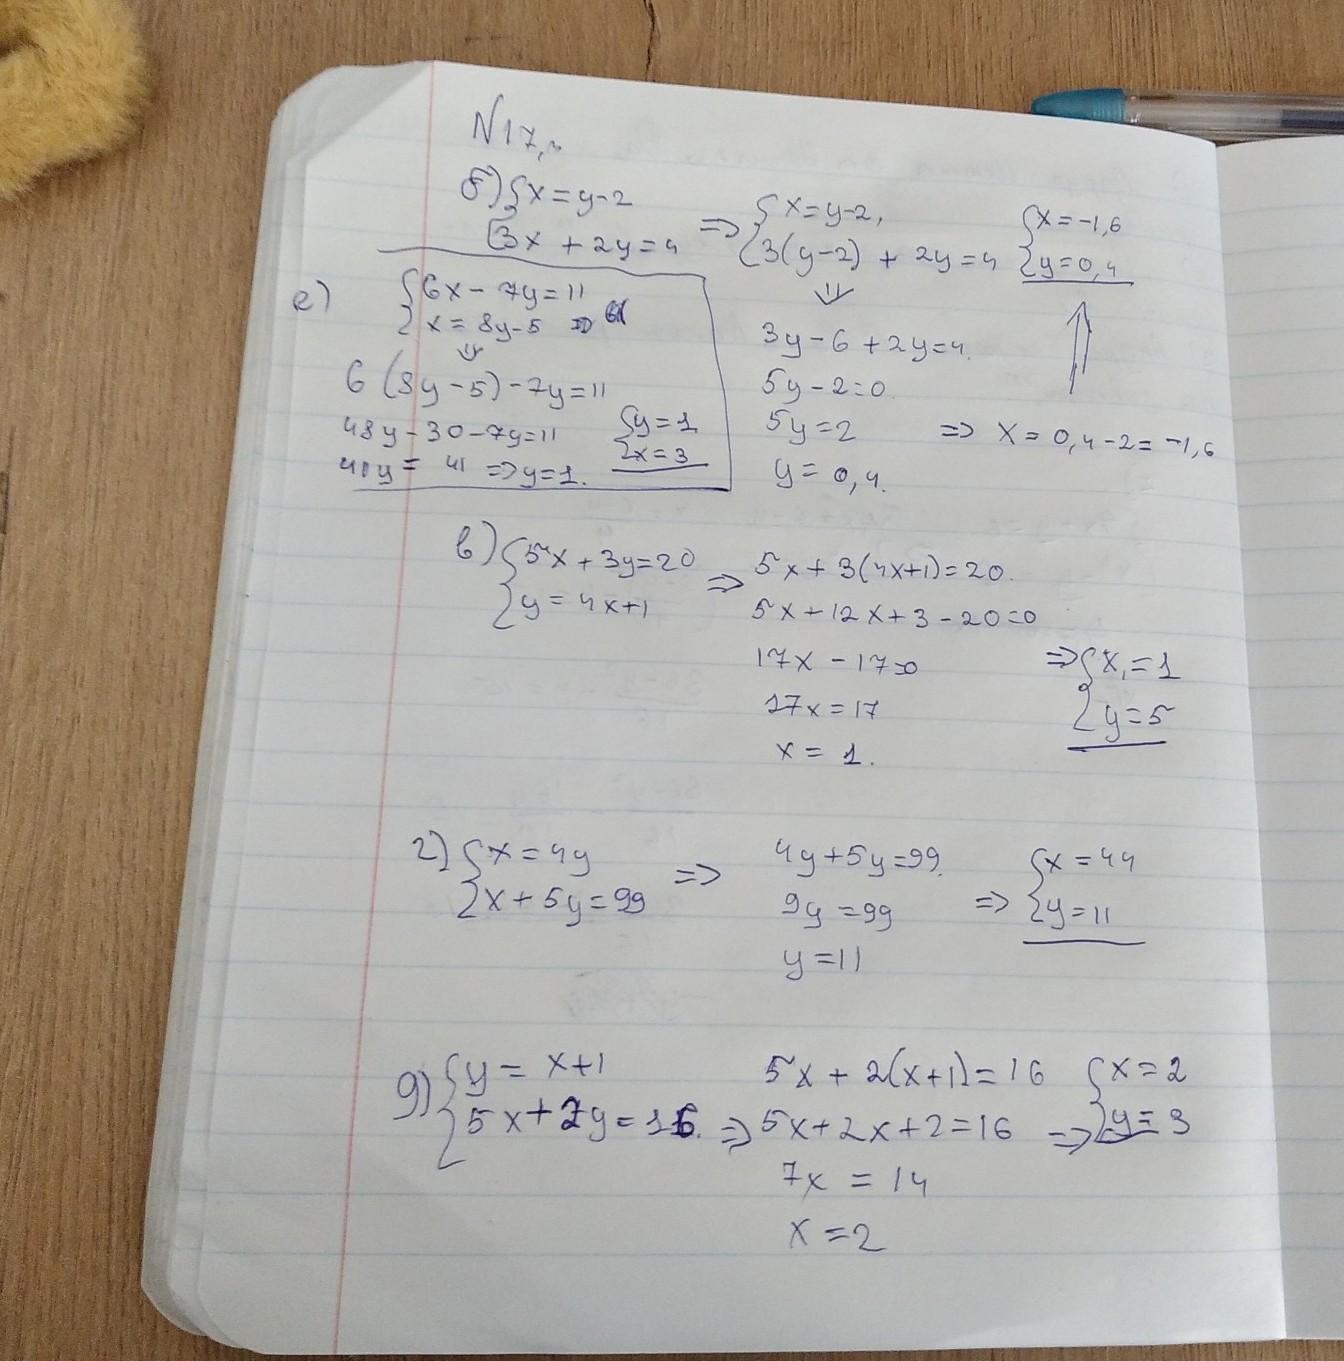 N17
б) {x = y-2
{3x + 2y = 4
=> {x = y-2,
{3(y-2) + 2y = 4
{x = -1,6
{y = 0,4
3y - 6 + 2y = 4.
5y - 2 = 0
5y = 2
y = 0,4.
=> x = 0,4 - 2 = -1,6
е) {6x - 7y = 11
{x = 8y-5 =>
6(8y-5) - 7y = 11
48y - 30 - 7y = 11
41y = 41 => y = 1.
{y = 1
{x = 3
в) {5x + 3y = 20
{y = 4x+1
=> 5x + 3(4x+1) = 20.
5x + 12x + 3 - 20 = 0
17x - 17 = 0
17x = 17
x = 1.
=> {x, = 1
{y = 5
г) {x = 4y
{x + 5y = 99
=> 4y + 5y = 99.
9y = 99
y = 11
=> {x = 44
{y = 11
д) {y = x+1
{5x + 2y = 16.
=> 5x + 2(x+1) = 16
5x + 2x + 2 = 16
7x = 14
x = 2
=> {x = 2
{y = 3